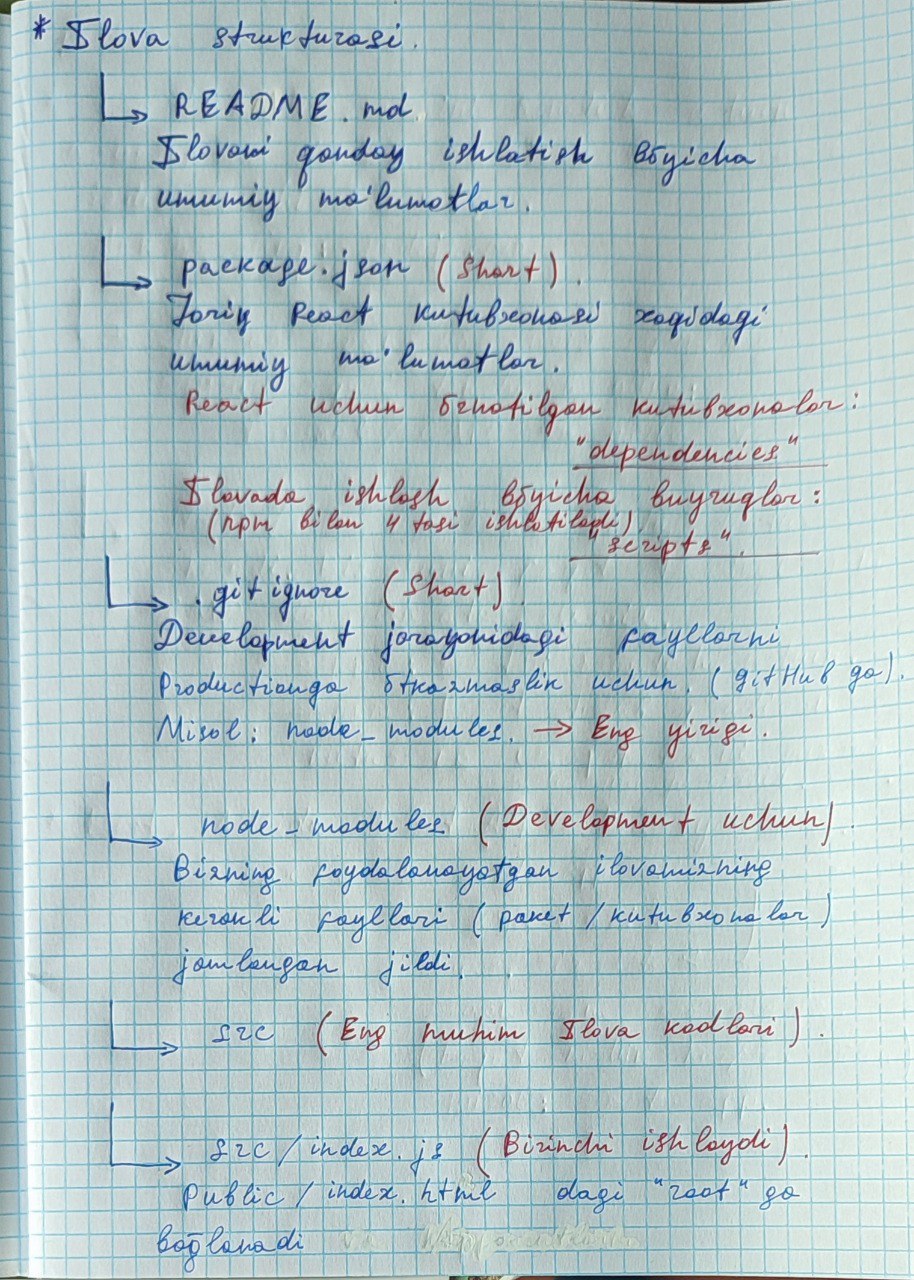 * Ilova strukturasi.
README.md
Ilovani qanday ishlatish bŏyicha
umumiy ma'lumotlar.
package.json (Shart).
Joriy React kutubxonasi xaqidagi
umumiy ma'lumotlar.
React uchun ŏrnatilgan kutubxonalar:
"dependencies"
Ilovada ishlash bŏyicha buyruqlar:
(npm bilan 4 tasi ishlatiladi)
"scripts".
.gitignore (Shart)
Development jarayonidagi fayllarni
Productionga ŏtkazmaslik uchun. (gitHub ga).
Misol: node_modules. → Eng yirigi.
node_modules (Development uchun).
Bizning foydalanayotgan ilovamizning
kerakli fayllari (paket/kutubxonalar)
jamlangan jildi.
src (Eng muhim Ilova kodlari).
src/index.js (Birinchi ishlaydi).
Public/index.html dagi "root" ga
boğlanadi